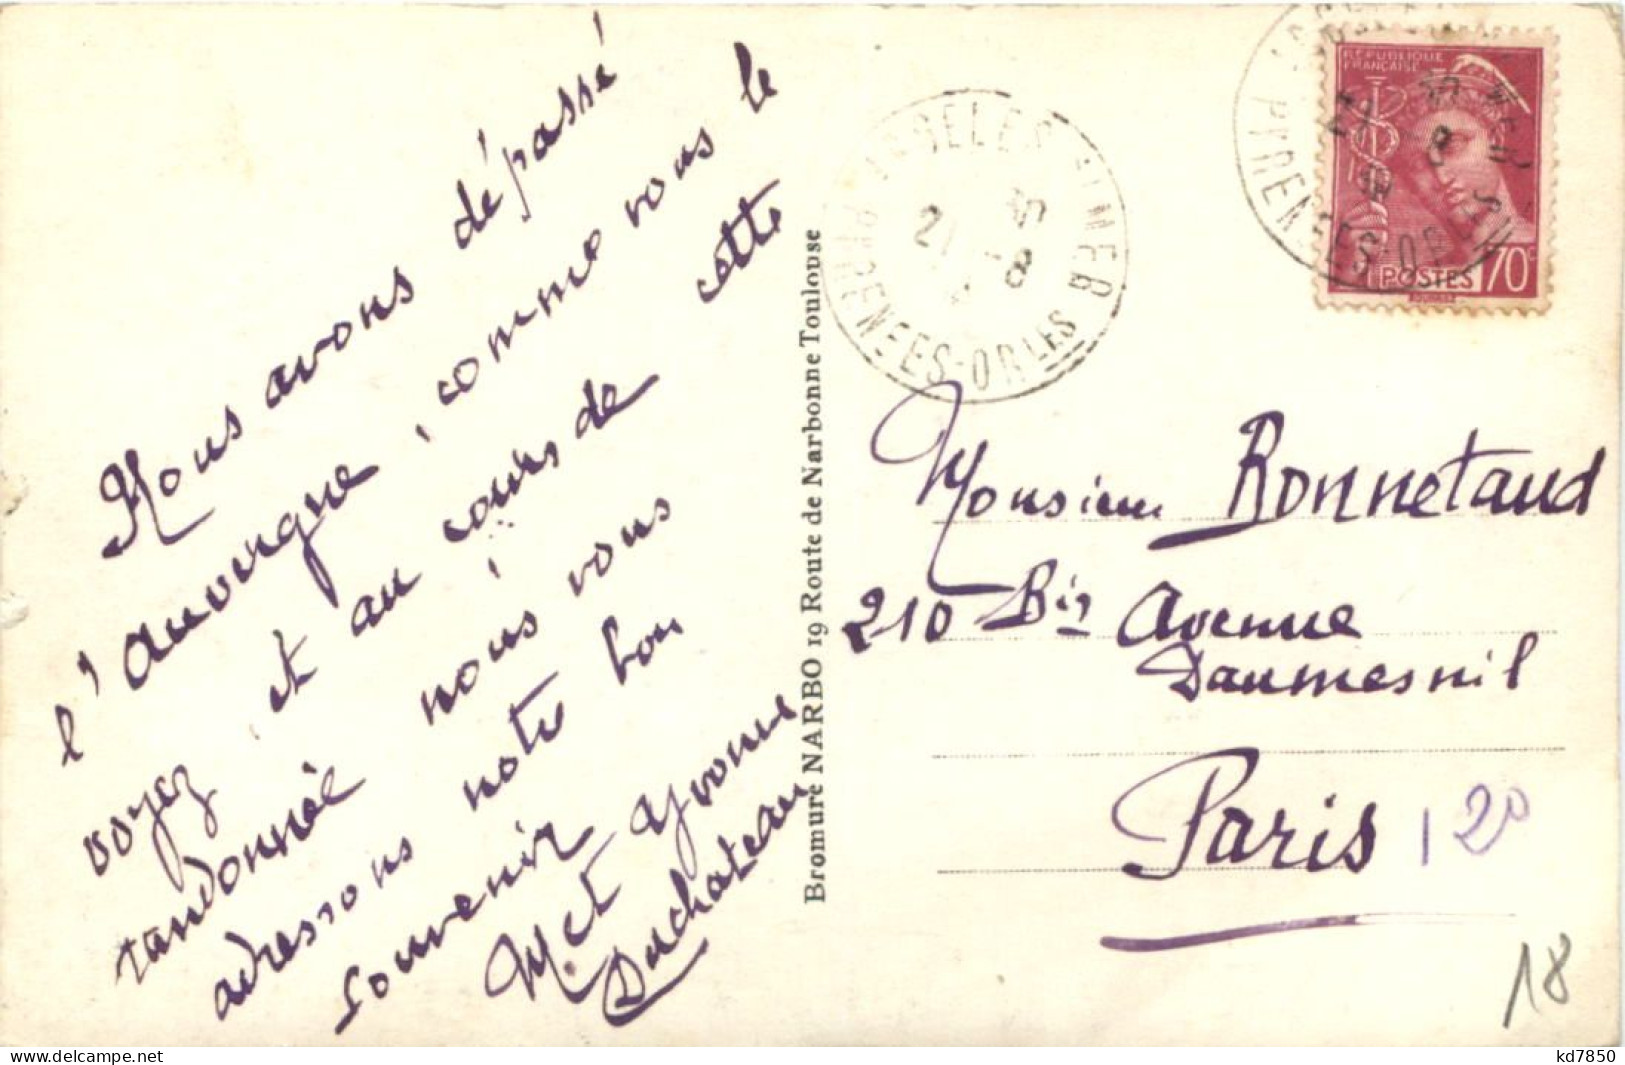 Nous avons dépassé
l'Auvergne comme vous le
voyez et au cours de cette
randonnée nous vous
adressons notre bon
souvenir
M et Yvonne
Duchateau
Bromure NARBO 19 Route de Narbonne Toulouse
ARGELES S/MER
PYRENEES-ORLES
21 8
RÉPUBLIQUE
FRANÇAISE
POSTES 70c
PYRENEES-OR
Monsieur Bonnetaud
210 Bis Avenue
Daumesnil
Paris 120
18
delcampe.net
kd7850